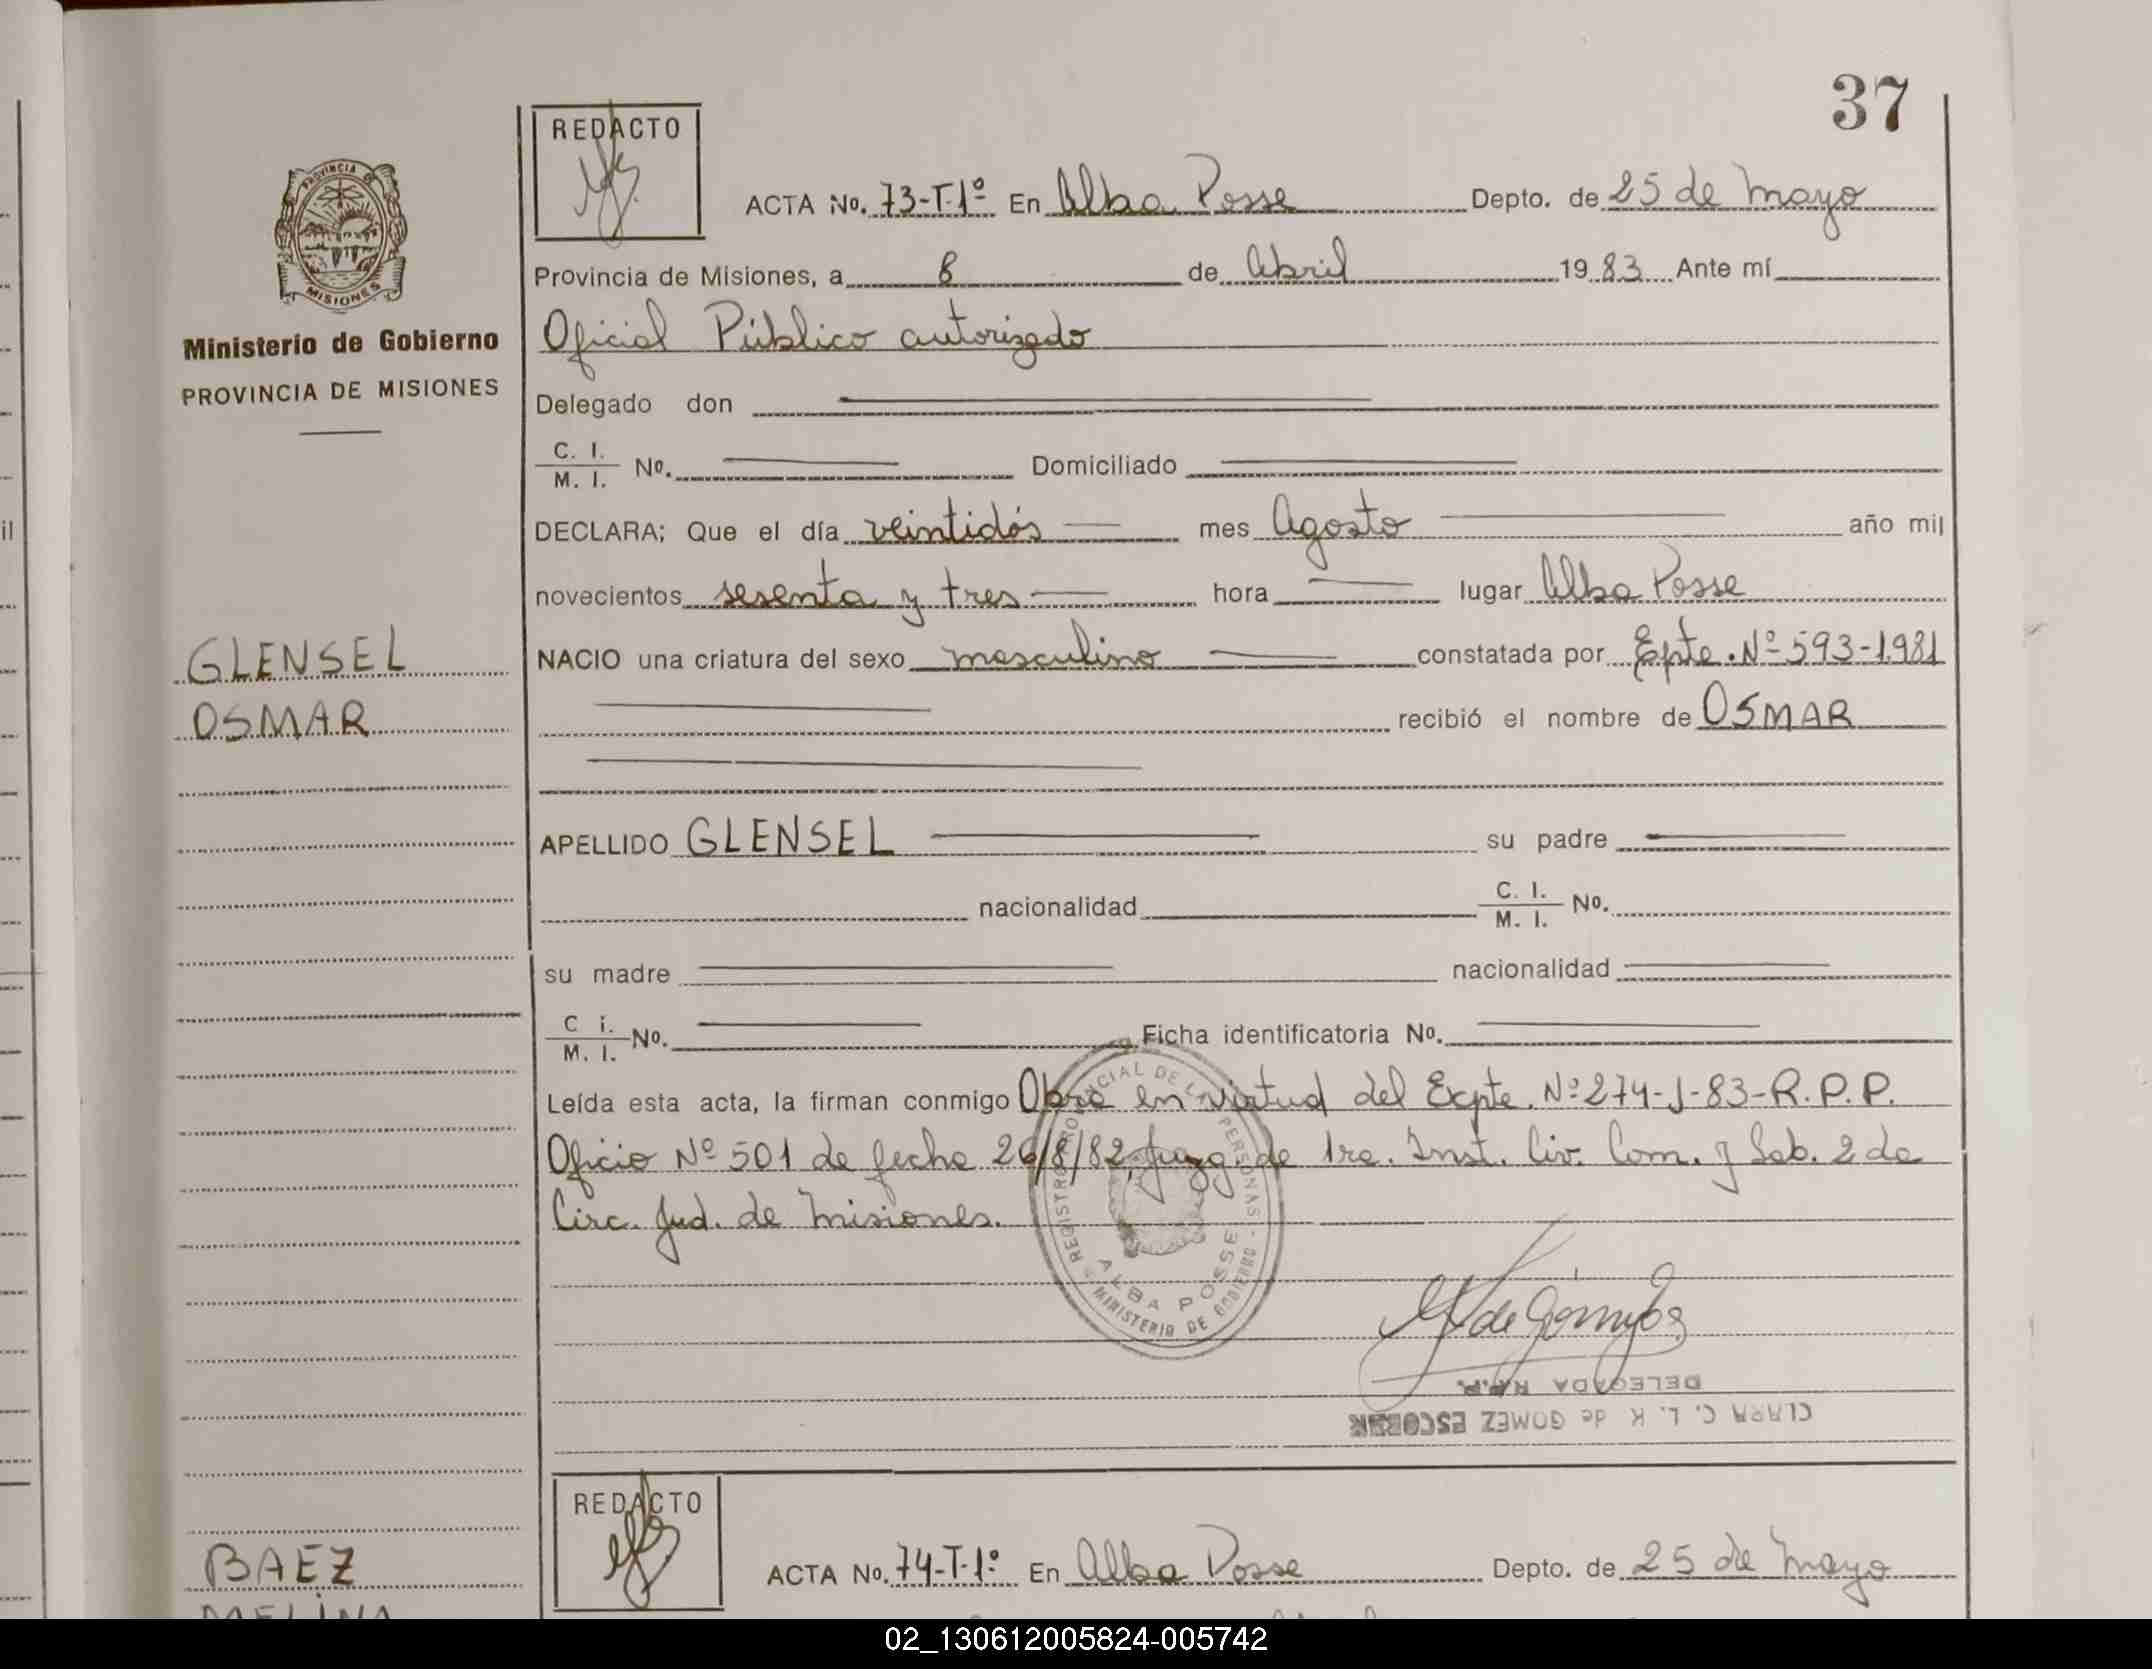 37
REDACTO
ACTA No. 73-T-1º En Alba Posse Depto. de 25 de Mayo
Provincia de Misiones, a 8 de Abril 1983 Ante mí
Oficial Público autorizado
Delegado don
C. I.
M. I. No. Domiciliado
DECLARA; Que el día veintidós mes Agosto año mil
novecientos sesenta y tres hora lugar Alba Posse
NACIO una criatura del sexo masculino constatada por Epte. Nº 593-1981
recibió el nombre de OSMAR
APELLIDO GLENSEL su padre
nacionalidad C. I.
M. I. No.
su madre nacionalidad
C i.
M. I. No. Ficha identificatoria No.
Leída esta acta, la firman conmigo Obra en virtud del Expte. Nº 274-J-83-R.P.P.
Oficio Nº 501 de fecha 26/8/82, Juzg. de 1ra. Inst. Civ. Com. y Lab. 2da
Circ. Jud. de Misiones.
REGISTRO PROVINCIAL DE LAS PERSONAS - MINISTERIO DE GOBIERNO
ALBA POSSE
DELEGADA R.P.P.
CLARA C. L. K de GOMEZ ESCOBAR
PROVINCIA DE
MISIONES
Ministerio de Gobierno
PROVINCIA DE MISIONES
GLENSEL
OSMAR
il
REDACTO
ACTA No. 74-T-1º En Alba Posse Depto. de 25 de Mayo
BAEZ
MELINA
02_130612005824-005742